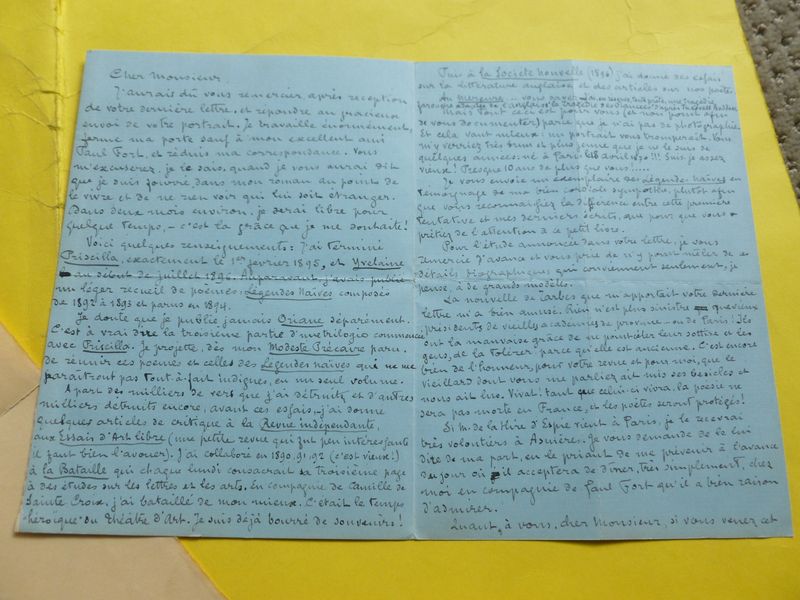 Cher Monsieur.
J'aurais dû vous remercier, après réception
de votre dernière lettre, et répondre au gracieux
envoi de votre portrait. Je travaille énormément,
ferme ma porte sauf à mon excellent ami
Paul Fort, et réduis ma correspondance. Vous
m'excuserez, je le sais, quand je vous aurai dit
que je suis fourré dans mon roman au point de
le vivre et de ne rien voir qui lui soit étranger.
Dans deux mois environ, je serai libre pour
quelque temps, – c'est la grâce que je me souhaite!
Voici quelques renseignements: J'ai terminé
Priscilla, exactement le 1er février 1895, et Yvelaine
au début de juillet 1896. Auparavant j'avais publié
un léger recueil de poèmes: Légendes Naïves composés
de 1892 à 1893 et parus en 1894.
Je doute que je publie jamais Oriane séparément.
C'est à vrai dire la troisième partie d'une trilogie commencée
avec Priscilla. Je projette, dès mon Modeste Précaire paru
de réunir ces poèmes et celles des Légendes naïves qui ne me
paraîtront pas tout-à-fait indignes, en un seul volume.
A part des milliers de vers que j'ai détruits, et d'autres
milliers détruits encore, avant ces essais, j'ai donné
quelques articles de critique à la Revue indépendante,
aux Essais d'Art libre (une petite revue qui fut peu intéressante
il faut bien l'avouer). J'ai collaboré en 1890, 91, 92 (c'est vieux!)
à la Bataille qui chaque lundi consacrait sa troisième page
à des études sur les lettres et les arts. En compagnie de Camille de
Sainte Croix, j'ai bataillé de mon mieux. C'était le temps
héroïque du Théâtre d'Art. Je suis déjà bourré de souvenirs!
Puis à la Société Nouvelle (1896) j'ai donné des essais
sur la littérature anglaise, et des articles sur nos poètes.
Au Mercure
Mais tout ce ci est pour vous (et non point afin
de vous documenter) parce que je n'ai pas de photographie.
Et cela vaut mieux: un portrait vous tromperait. Vous
m'y verriez très brun et plus jeune que je ne le suis de
quelques années. né à Paris le 18 avril !!! Suis-je assez
vieux! Presque 10 ans de plus que vous!.....
Je vous envoie un exemplaire des Légendes Naïves en
témoignage de ma bien cordiale sympathie, plutôt afin
que vous reconnaissiez la différence entre cette première
tentative et mes derniers écrits, que pour que vous
prêtiez de l'attention à ce petit livre.
Pour l'étude annoncée dans votre lettre, je vous
remercie d'avance et vous prie de n'y point mêler de ces
détails biographiques qui conviennent seulement, je
pense, à de grands modèles.
La nouvelle de Tarbes que m'apportait votre dernière
lettre m'a bien amusé. Rien n'est plus sinistre que ces vieux
présidents de vieilles académies de province – ou de Paris! Ils
ont la mauvaise grâce de ne point céler leur sottise et les
gens, de la tolérer: parce qu'elle est ancienne. C'est encore
bien de l'honneur, pour votre revue et pour moi, que le
vieillard dont vous me parliez ait mis ses besicles et
nous ait lus. Vivat! tant que celui-ci vivra, la poésie ne
sera pas morte en France, et les poètes seront protégés!
Si M. de la Hire d'Espie vient à Paris, je le recevrai
très volontiers à Asnières. Je vous demande de le lui
dire de ma part, en le priant de me prévenir à l'avance
du jour où il acceptera de dîner, très simplement, chez
moi en compagnie de Paul Fort qu'il a bien raison
d'admirer.
Quant, à vous, cher Monsieur, si vous venez cet